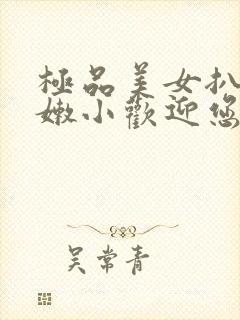 極品美女扒
嫩小歡迎您
吴常青